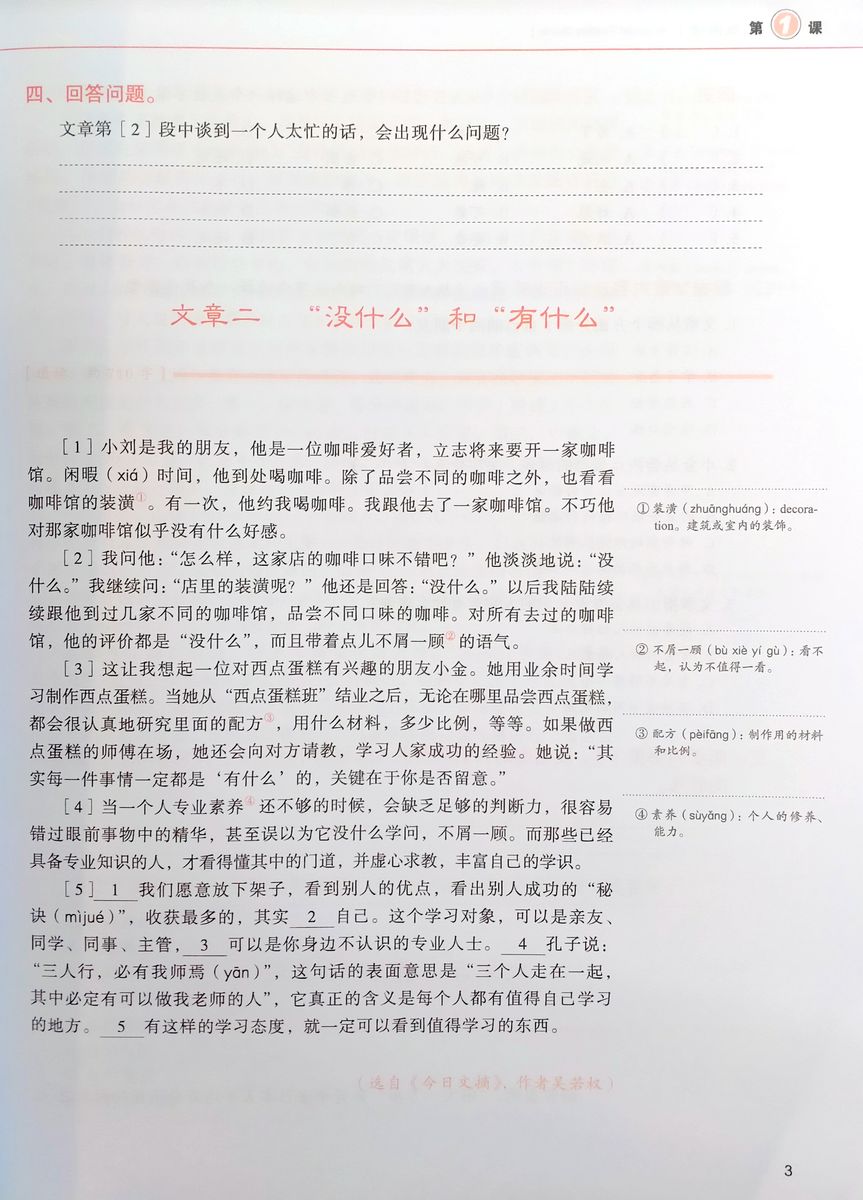 第1课
四、回答问题。
文章第［2］段中谈到一个人太忙的话，会出现什么问题？
文章二 “没什么”和“有什么”
［1］小刘是我的朋友，他是一位咖啡爱好者，立志将来要开一家咖啡
馆。闲暇（xiá）时间，他到处喝咖啡。除了品尝不同的咖啡之外，也看看
咖啡馆的装潢①。有一次，他约我喝咖啡。我跟他去了一家咖啡馆。不巧他
对那家咖啡馆似乎没有什么好感。
［2］我问他：“怎么样，这家店的咖啡口味不错吧？”他淡淡地说：“没
什么。”我继续问：“店里的装潢呢？”他还是回答：“没什么。”以后我陆陆续
续跟他到过几家不同的咖啡馆，品尝不同口味的咖啡。对所有去过的咖啡
馆，他的评价都是“没什么”，而且带着点儿不屑一顾②的语气。
［3］这让我想起一位对西点蛋糕有兴趣的朋友小金。她用业余时间学
习制作西点蛋糕。当她从“西点蛋糕班”结业之后，无论在哪里品尝西点蛋糕，
都会很认真地研究里面的配方③，用什么材料，多少比例，等等。如果做西
点蛋糕的师傅在场，她还会向对方请教，学习人家成功的经验。她说：“其
实每一件事情一定都是‘有什么’的，关键在于你是否留意。”
［4］当一个人专业素养④还不够的时候，会缺乏足够的判断力，很容易
错过眼前事物中的精华，甚至误以为它没什么学问，不屑一顾。而那些已经
具备专业知识的人，才看得懂其中的门道，并虚心求教，丰富自己的学识。
［5］ 1 我们愿意放下架子，看到别人的优点，看出别人成功的“秘
诀（mìjué）”，收获最多的，其实 2 自己。这个学习对象，可以是亲友、
同学、同事、主管， 3 可以是你身边不认识的专业人士。 4 孔子说：
“三人行，必有我师焉（yān）”，这句话的表面意思是“三个人走在一起，
其中必定有可以做我老师的人”，它真正的含义是每个人都有值得自己学习
的地方。 5 有这样的学习态度，就一定可以看到值得学习的东西。
（选自《今日文摘》，作者吴若权）
① 装潢（zhuānghuáng）：decora-
tion。建筑或室内的装饰。
② 不屑一顾（bù xiè yí gù）：看不
起，认为不值得一看。
③ 配方（pèifāng）：制作用的材料
和比例。
④ 素养（sùyǎng）：个人的修养、
能力。
3